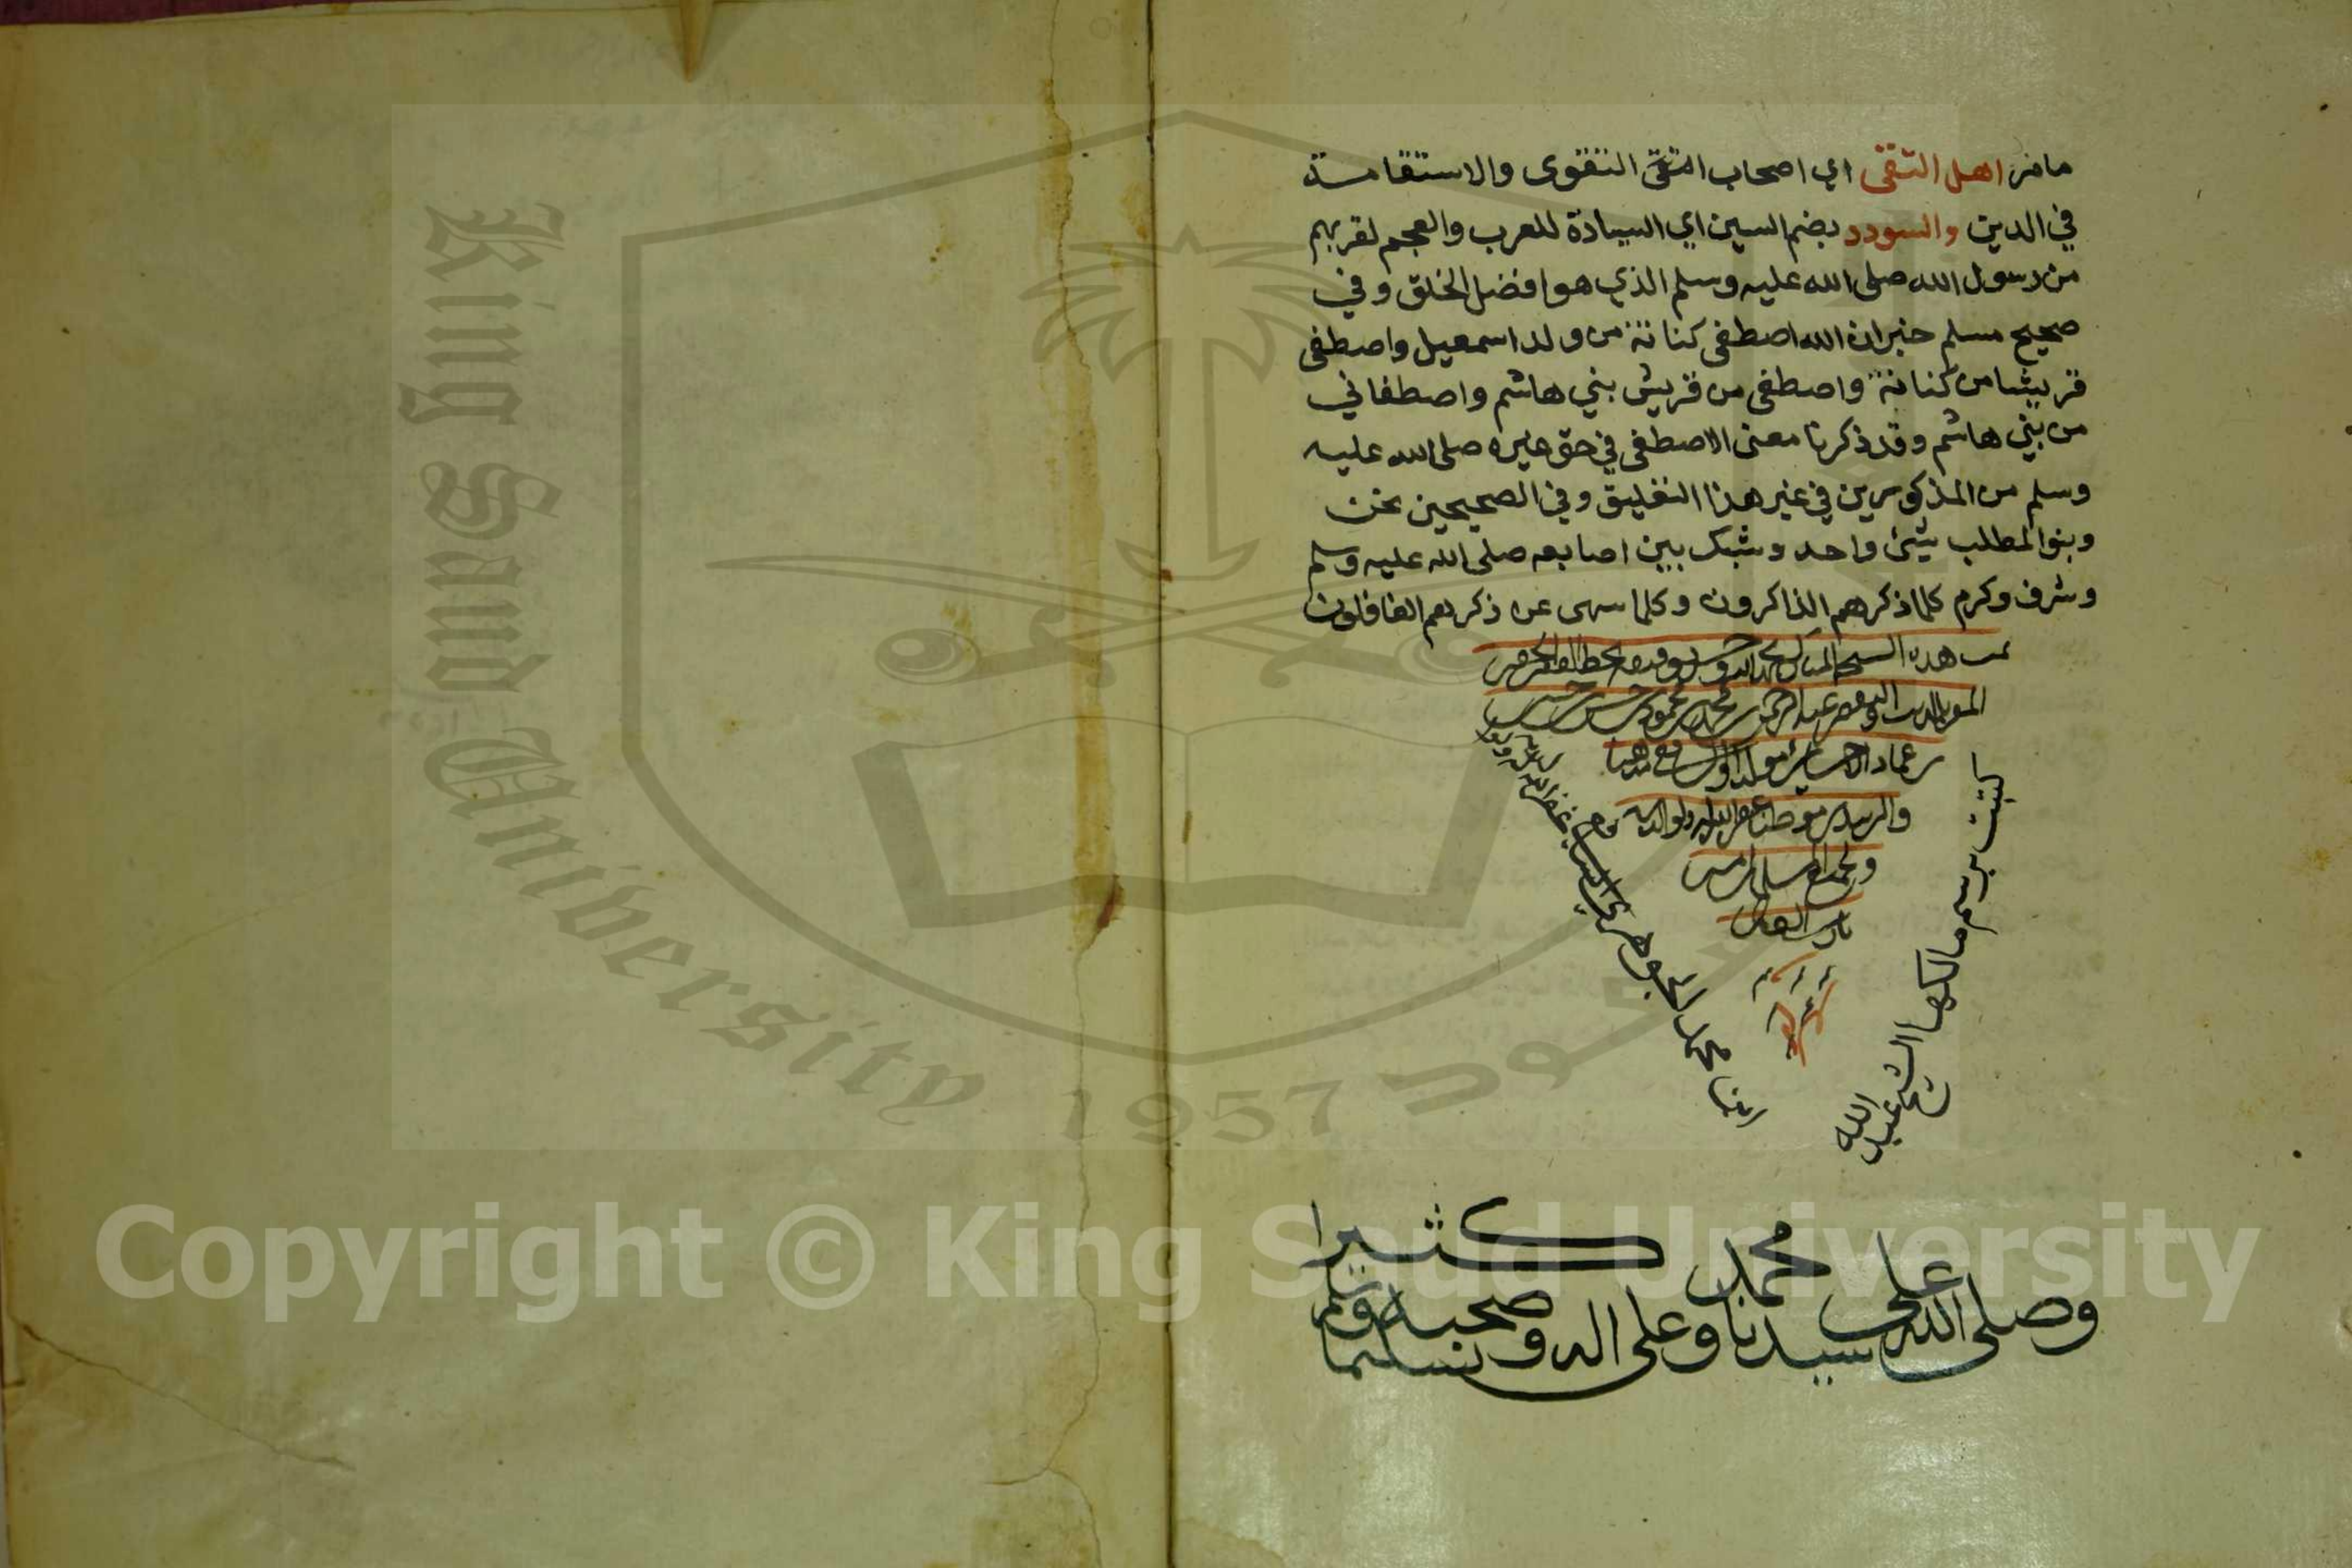 مامن اهل التقى اي اصحاب التقى التقوى والاستقامة
في الدين والسودد بضم السين اي السيادة للعرب والعجم لقربهم
من رسول الله صلى الله عليه وسلم الذي هو افضل الخلق وفي
صحيح مسلم خبر ان الله اصطفى كنانة من ولد اسمعيل واصطفى
قريشا من كنانة واصطفى من قريش بني هاشم واصطفاني
من بني هاشم وقد ذكرنا معنى الاصطفى في حق غيره صلى الله عليه
وسلم من المذكورين في غير هذا التعليق وفي الصحيحين نحن
وبنو المطلب شيئ واحد وشبك بين اصابعه صلى الله عليه وسلم
وشرف وكرم كلما ذكرهم الذاكرون وكلما سهى عن ذكرهم الغافلون
تمت هذه النسخة المباركة بحمد الله وحسن توفيقه بخط الفقير الحقير
عبد الرحمن بن محمد بن محمود بن حسن
بن عماد الاحسائي مولدا والشافعي مذهبا
موطنا غفر الله له ولوالديه
ولجميع المسلمين امين
يارب العالمين
كتبت برسم مالكها الشيخ عبد الله
ابن محمد الجوهري الشافعي غفر الله
وصلى الله على سيدنا محمد وعلى اله وصحبه وسلم تسليما كثيرا
King Saud University
1957
Copyright © King Saud University